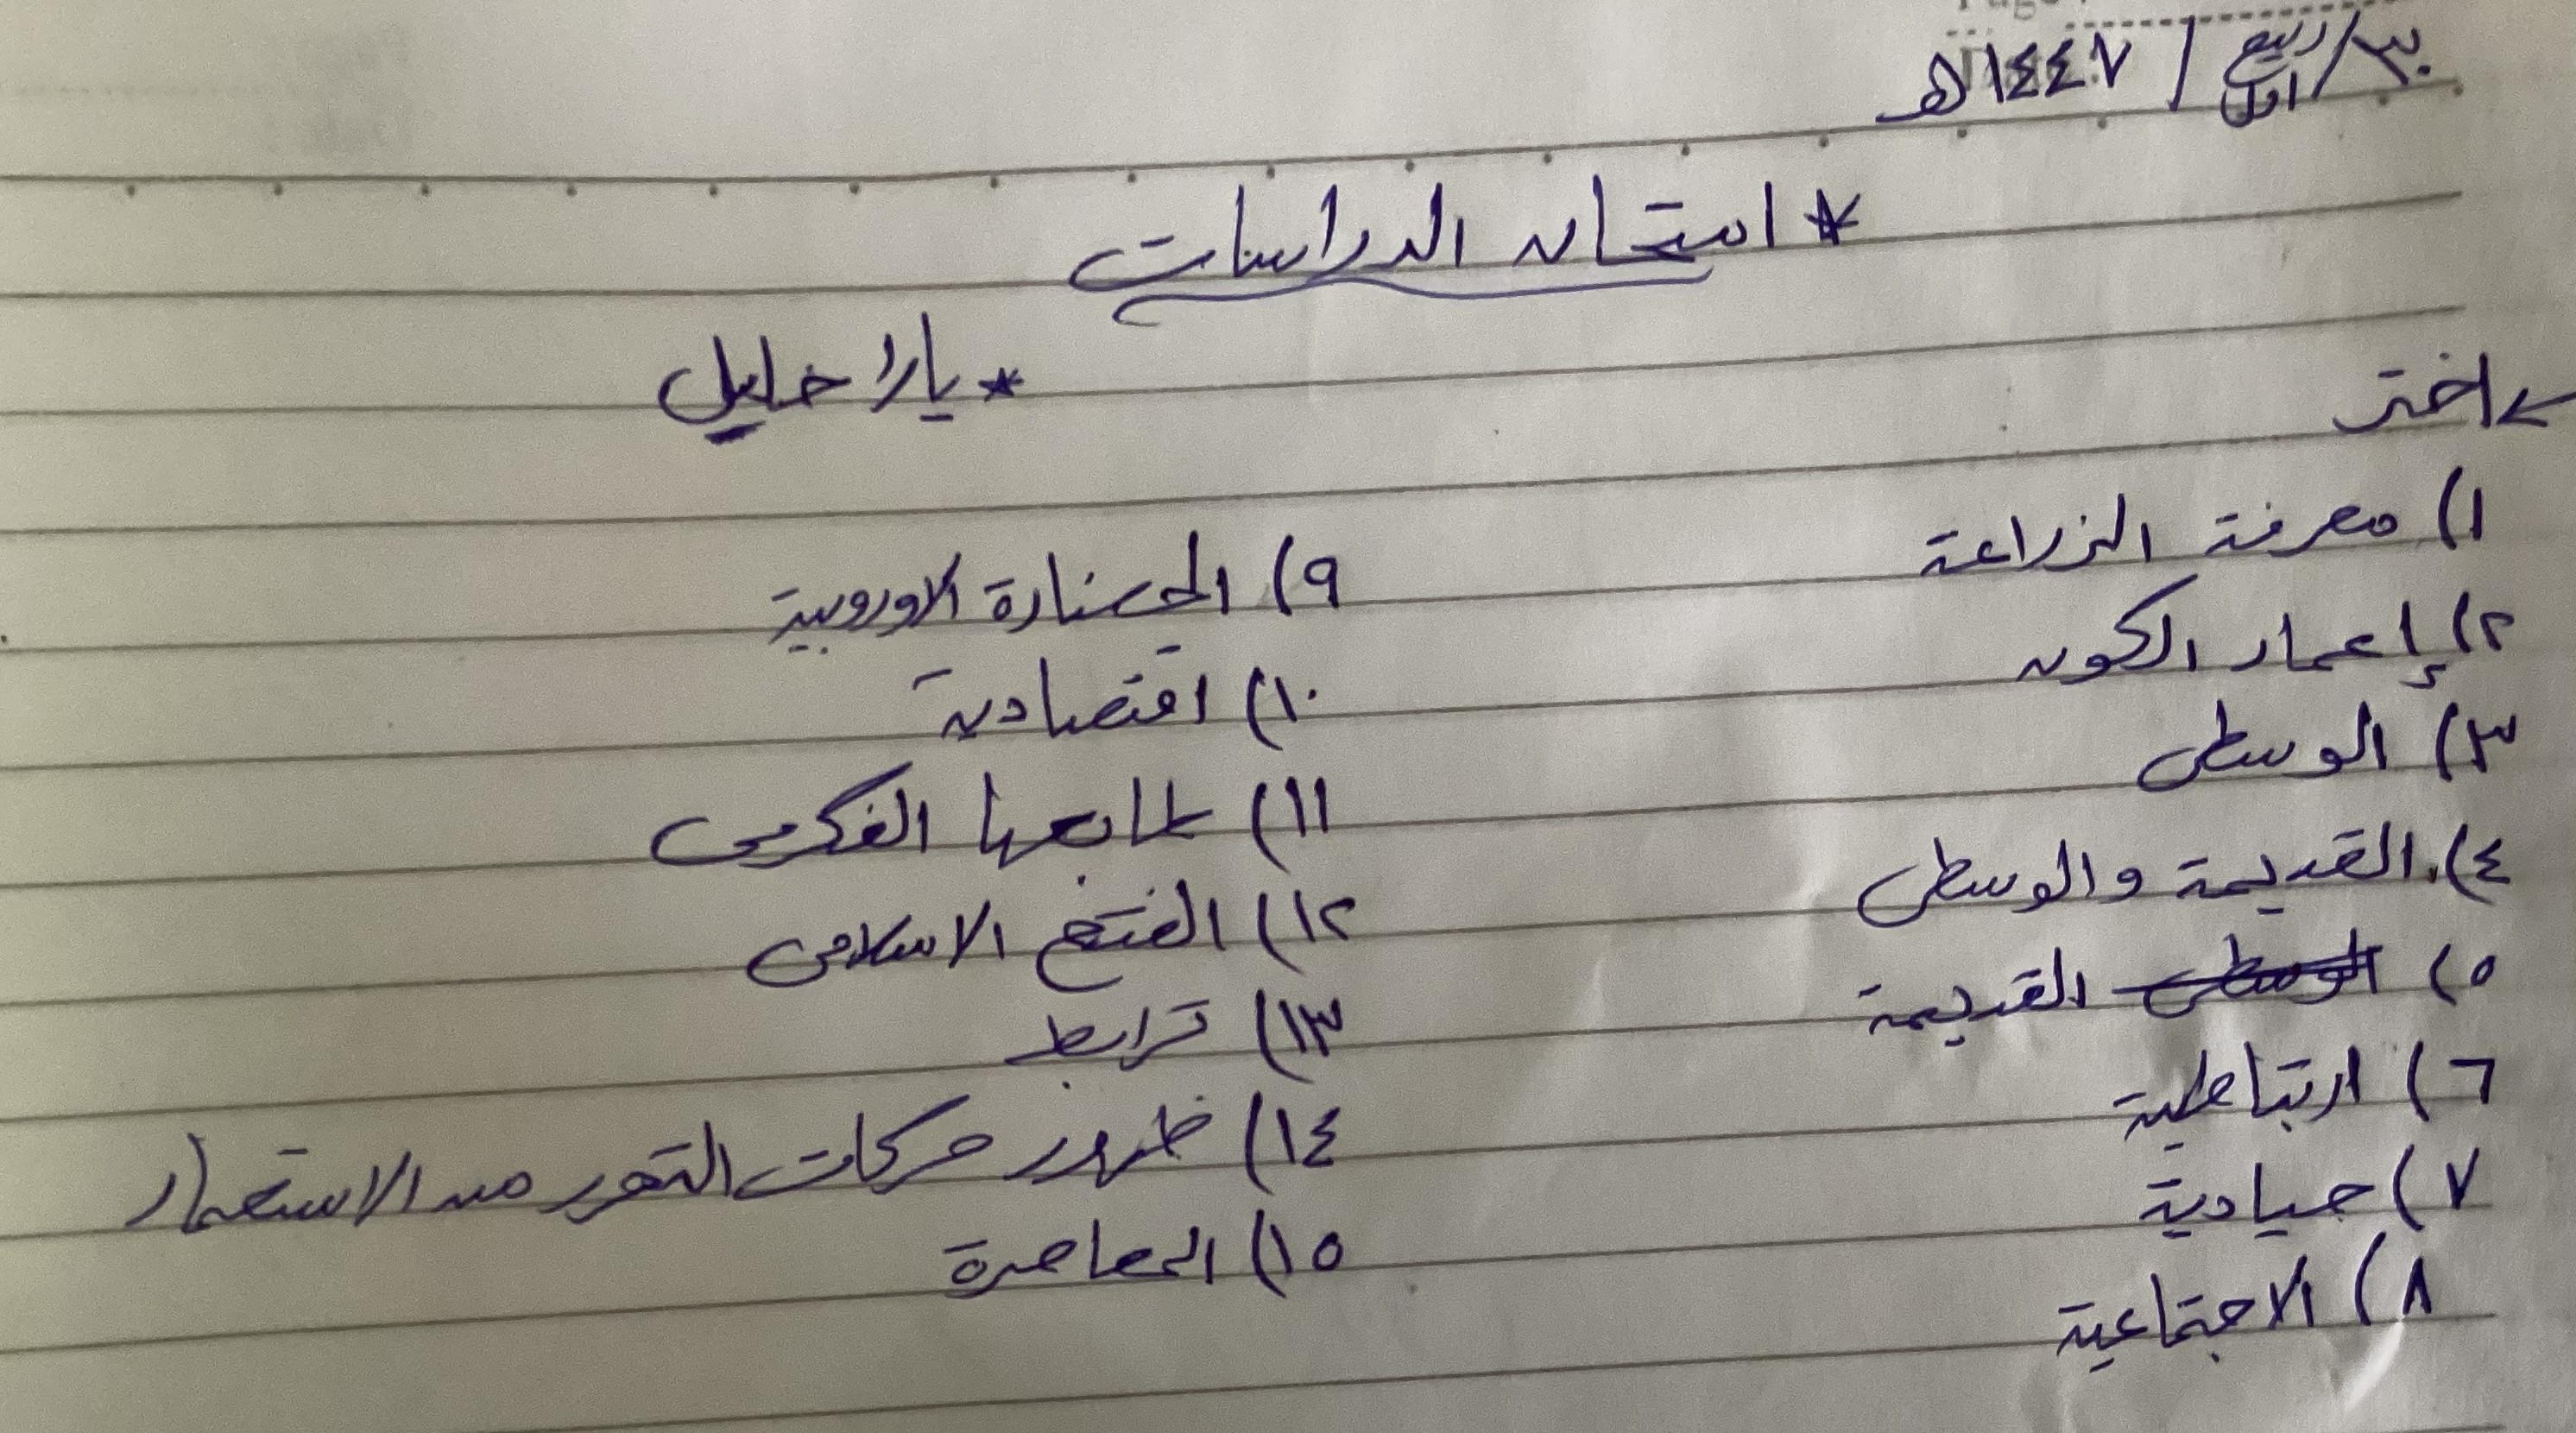 ٣٠/ربيع اول/١٤٤٧هـ
* امتحان الدراسات
* يارا خليل
← اختر
١) معرفة الزراعة
٢) إعمار الكون
٣) الوسطى
٤) القديمة والوسطى
٥) الوسطى القديمة
٦) ارتباطية
٧) حيادية
٨) الاجتماعية
٩) الحضارة الاوروبية
١٠) اقتصادية
١١) طابعها الفكرى
١٢) الفتح الاسلامى
١٣) ترابط
١٤) ظهور حركات التحرر من الاستعمار
١٥) المعاصرة